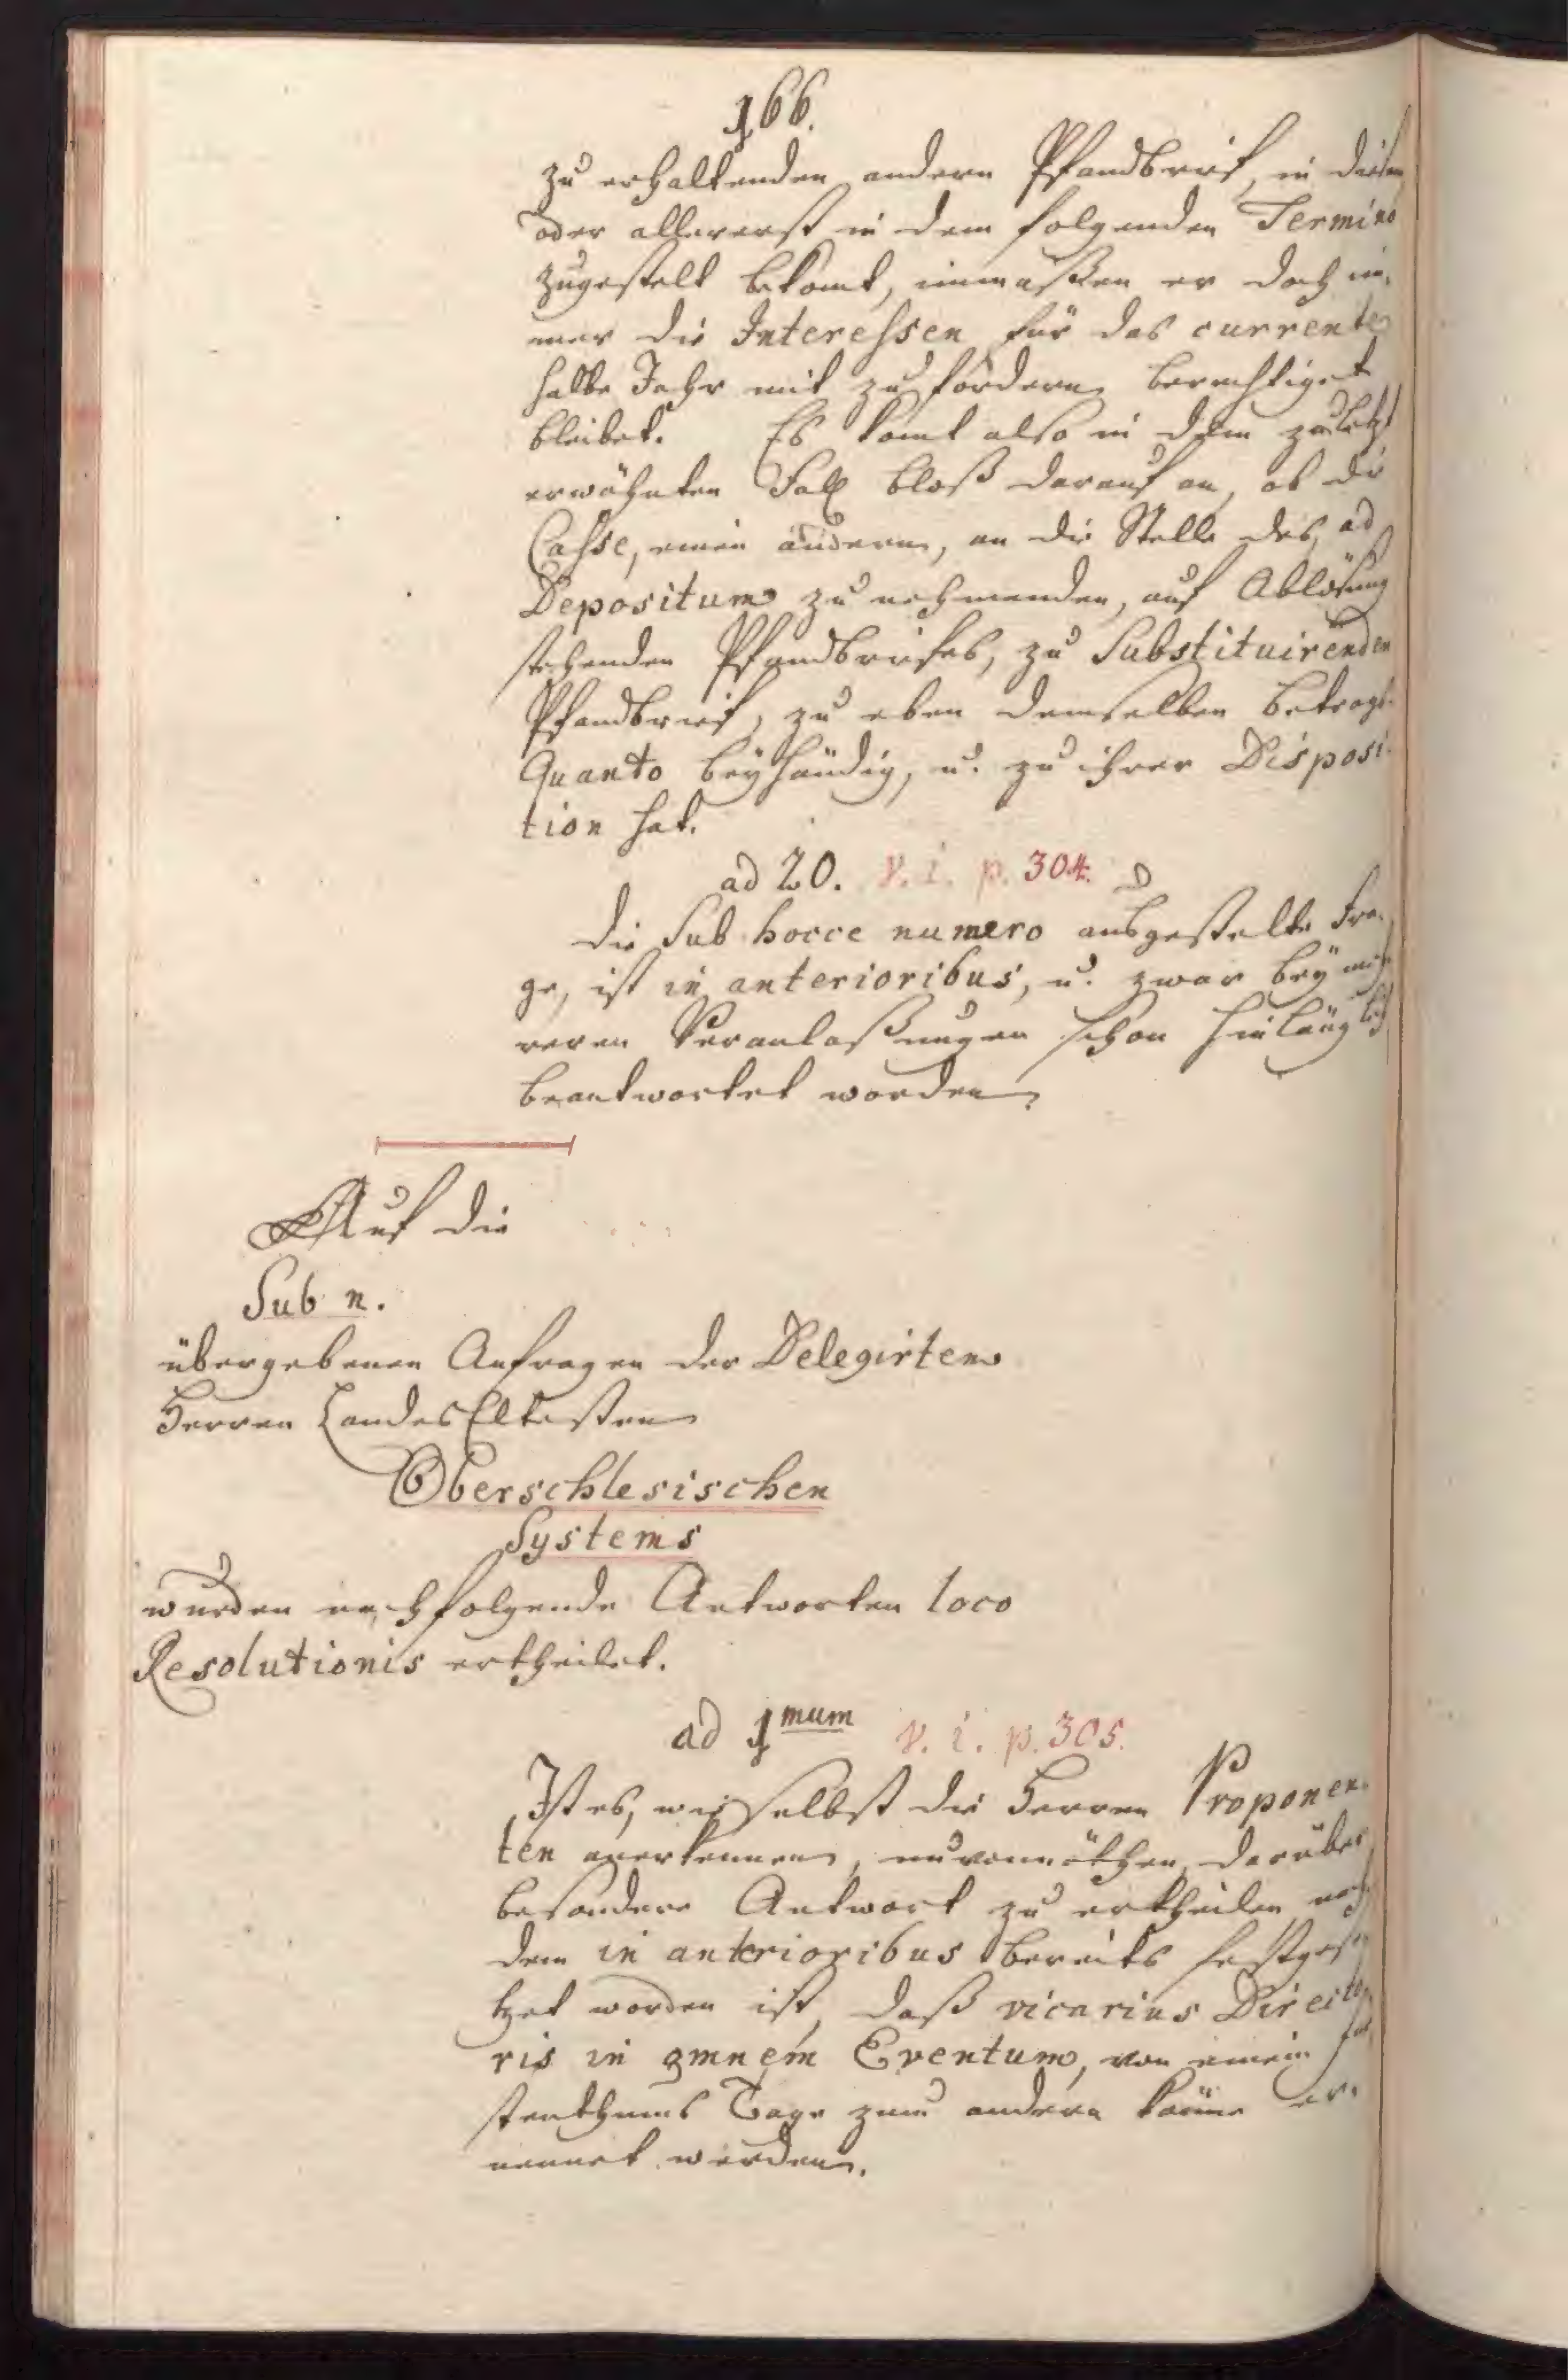 166.
zu erhaltenden andern Pfandbrief, in diesem
oder allererst in dem folgenden Termino
zugestelt bekomt, immaßen er doch im-
mer die Interessen für das currente
halbe Jahr mit zu fordern berechtiget
bleibet. Es komt also in dem zuletzt
erwähnten Fall bloß darauf an, ob die
Casse, einen andern, an die Stelle des, ad
Depositum zu nehmenden, auf Ablösung
stehenden Pfandbriefes, zu Substituirenden
Pfandbrief, zu eben demselben Betrags-
Quanto beyhändig, u. zu ihrer Disposi-
tion hat.
ad 20. v. i. p. 304.
Die Sub hocce numero ausgestelte Fra-
ge, ist in anterioribus, u. zwar bey meh-
reren Veranlaßungen schon hinlänglich
beantwortet worden.
Auf die
Sub n.
übergebenen Anfragen der Delegirten
Herren LandesEltesten
Oberschlesischen
Systems
wurden nachfolgende Antworten loco
Resolutionis ertheilet.
ad 1mum v. i. p. 305.
Ist es, wie selbst die Herren Proponen-
ten anerkennen, unvonnöthen, darüber
besondere Antwort zu ertheilen, nach-
dem in anterioribus bereits festgese-
tzet worden ist, daß vicarius Directo-
ris in omnem Eventum, von einem Für-
stenthums Tage zum andern könne er-
nennet werden.